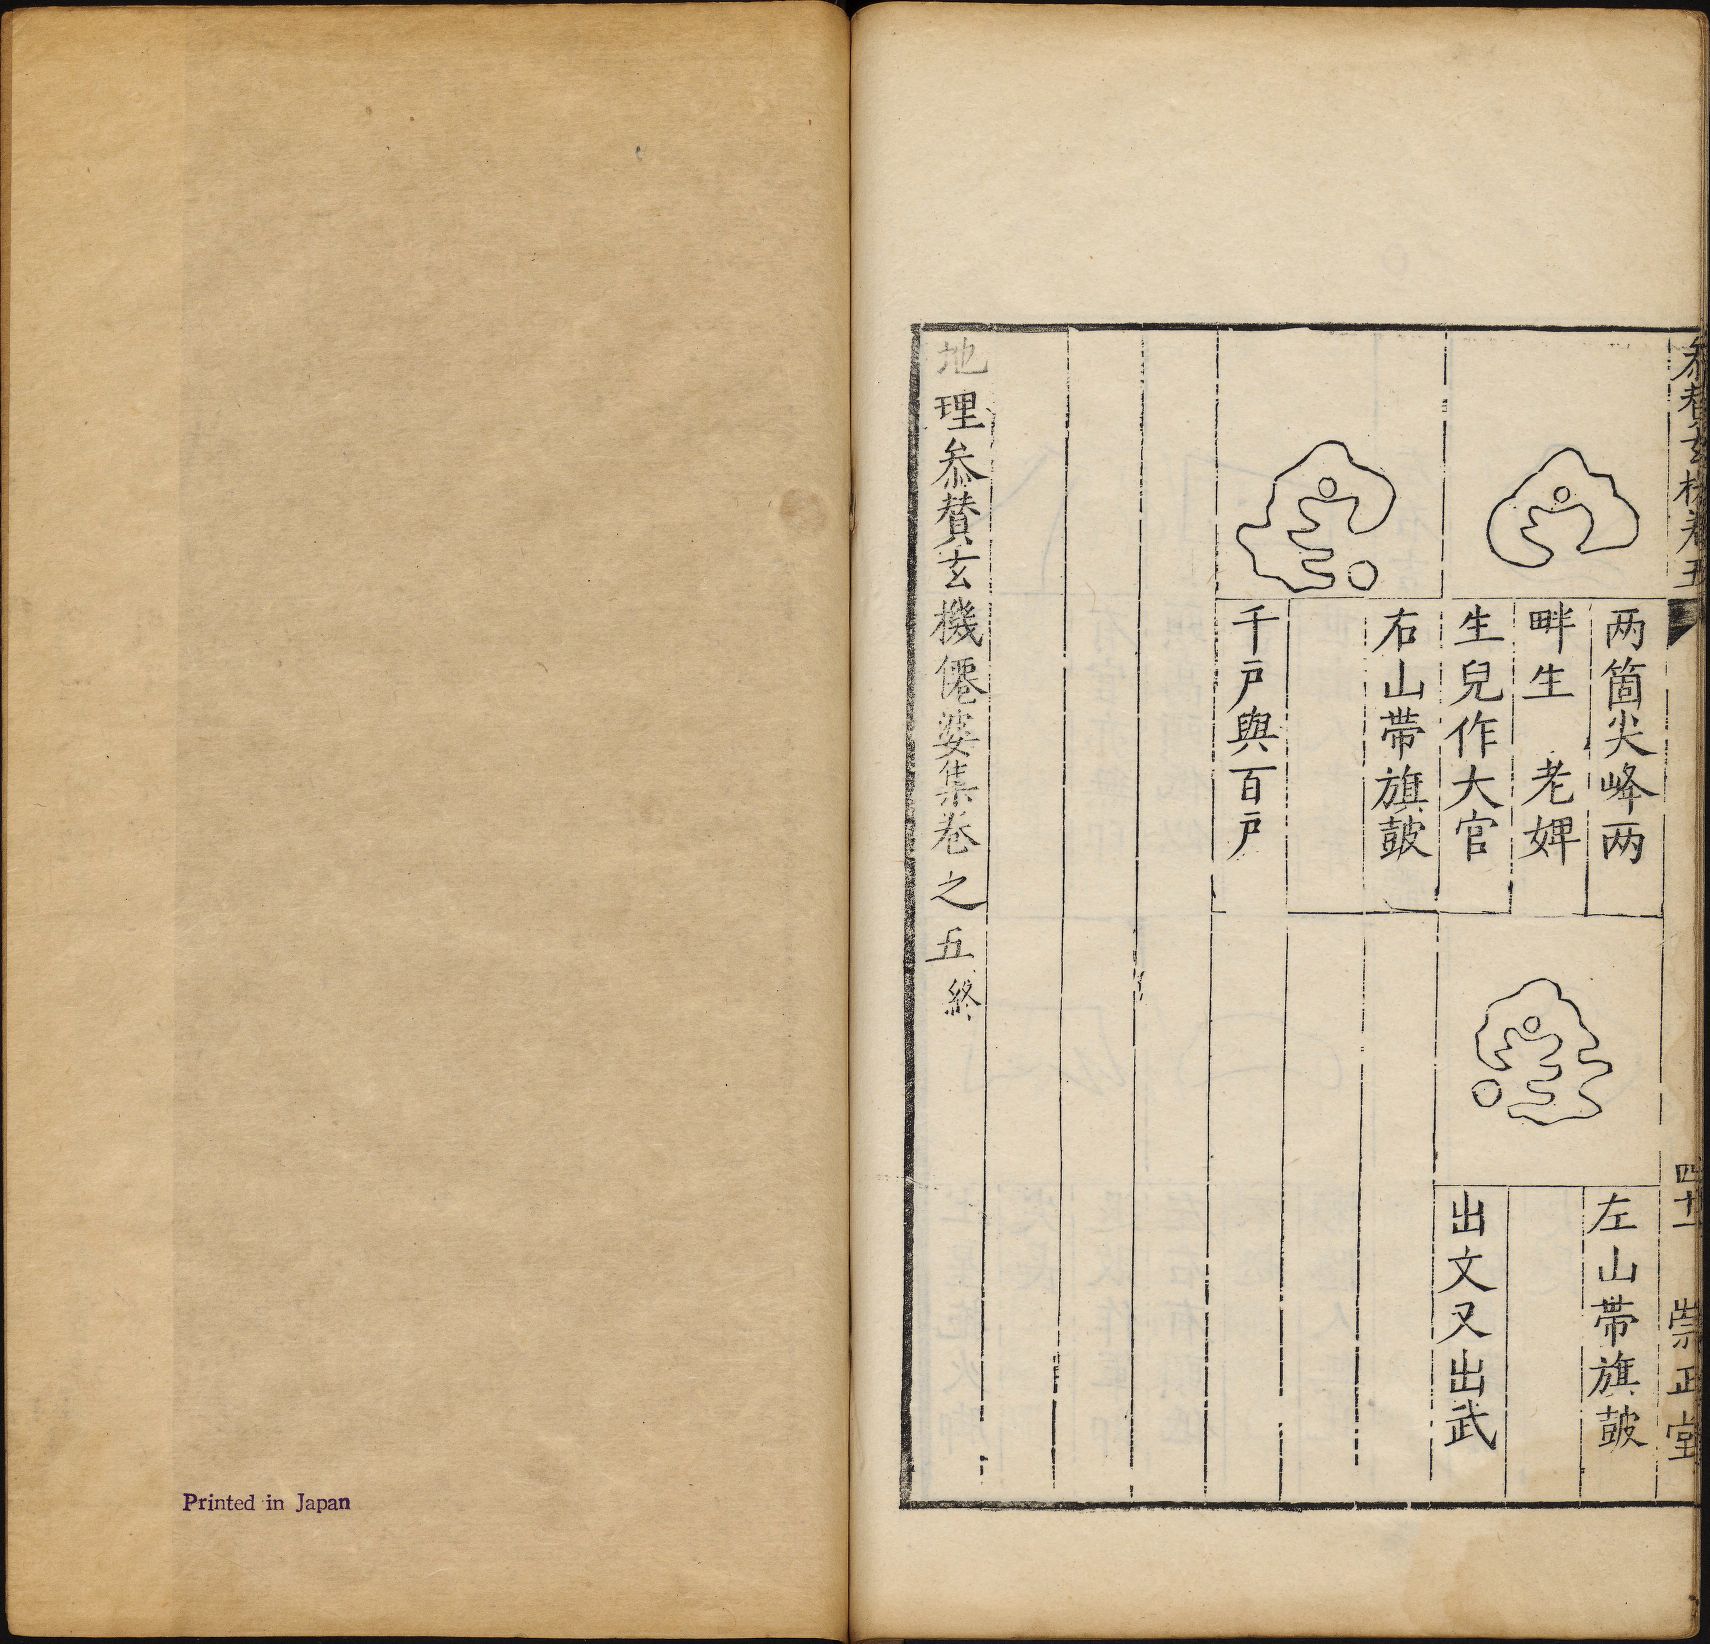 參賛玄機卷五
四十一
崇正堂
两箇尖峰两
畔生 老婢
生兒作大官
左山帶旗鼓
出文又出武
右山帶旗鼓
千戸與百戸
地理叅賛玄機僊婆集卷之五終
Printed in Japan